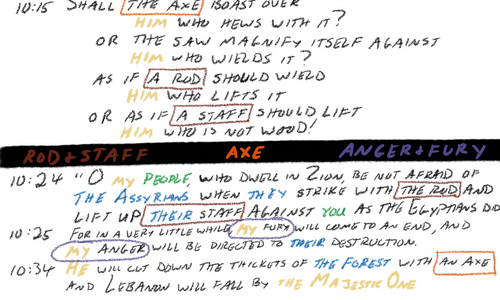 10:15 SHALL THE AXE BOAST OVER
HIM WHO HEWS WITH IT?
OR THE SAW MAGNIFY ITSELF AGAINST
HIM WHO WIELDS IT?
AS IF A ROD SHOULD WIELD
HIM WHO LIFTS IT
OR AS IF A STAFF SHOULD LIFT
HIM WHO IS NOT WOOD!
ROD + STAFF AXE ANGER + FURY
10:24 "O MY PEOPLE, WHO DWELL IN ZION, BE NOT AFRAID OF
THE ASSYRIANS WHEN THEY STRIKE WITH THE ROD AND
LIFT UP THEIR STAFF AGAINST YOU AS THE EGYPTIANS DID
10:25 FOR IN A VERY LITTLE WHILE MY FURY WILL COME TO AN END, AND
MY ANGER WILL BE DIRECTED TO THEIR DESTRUCTION.
10:34 HE WILL CUT DOWN THE THICKETS OF THE FOREST WITH AN AXE
AND LEBANON WILL FALL BY THE MAJESTIC ONE